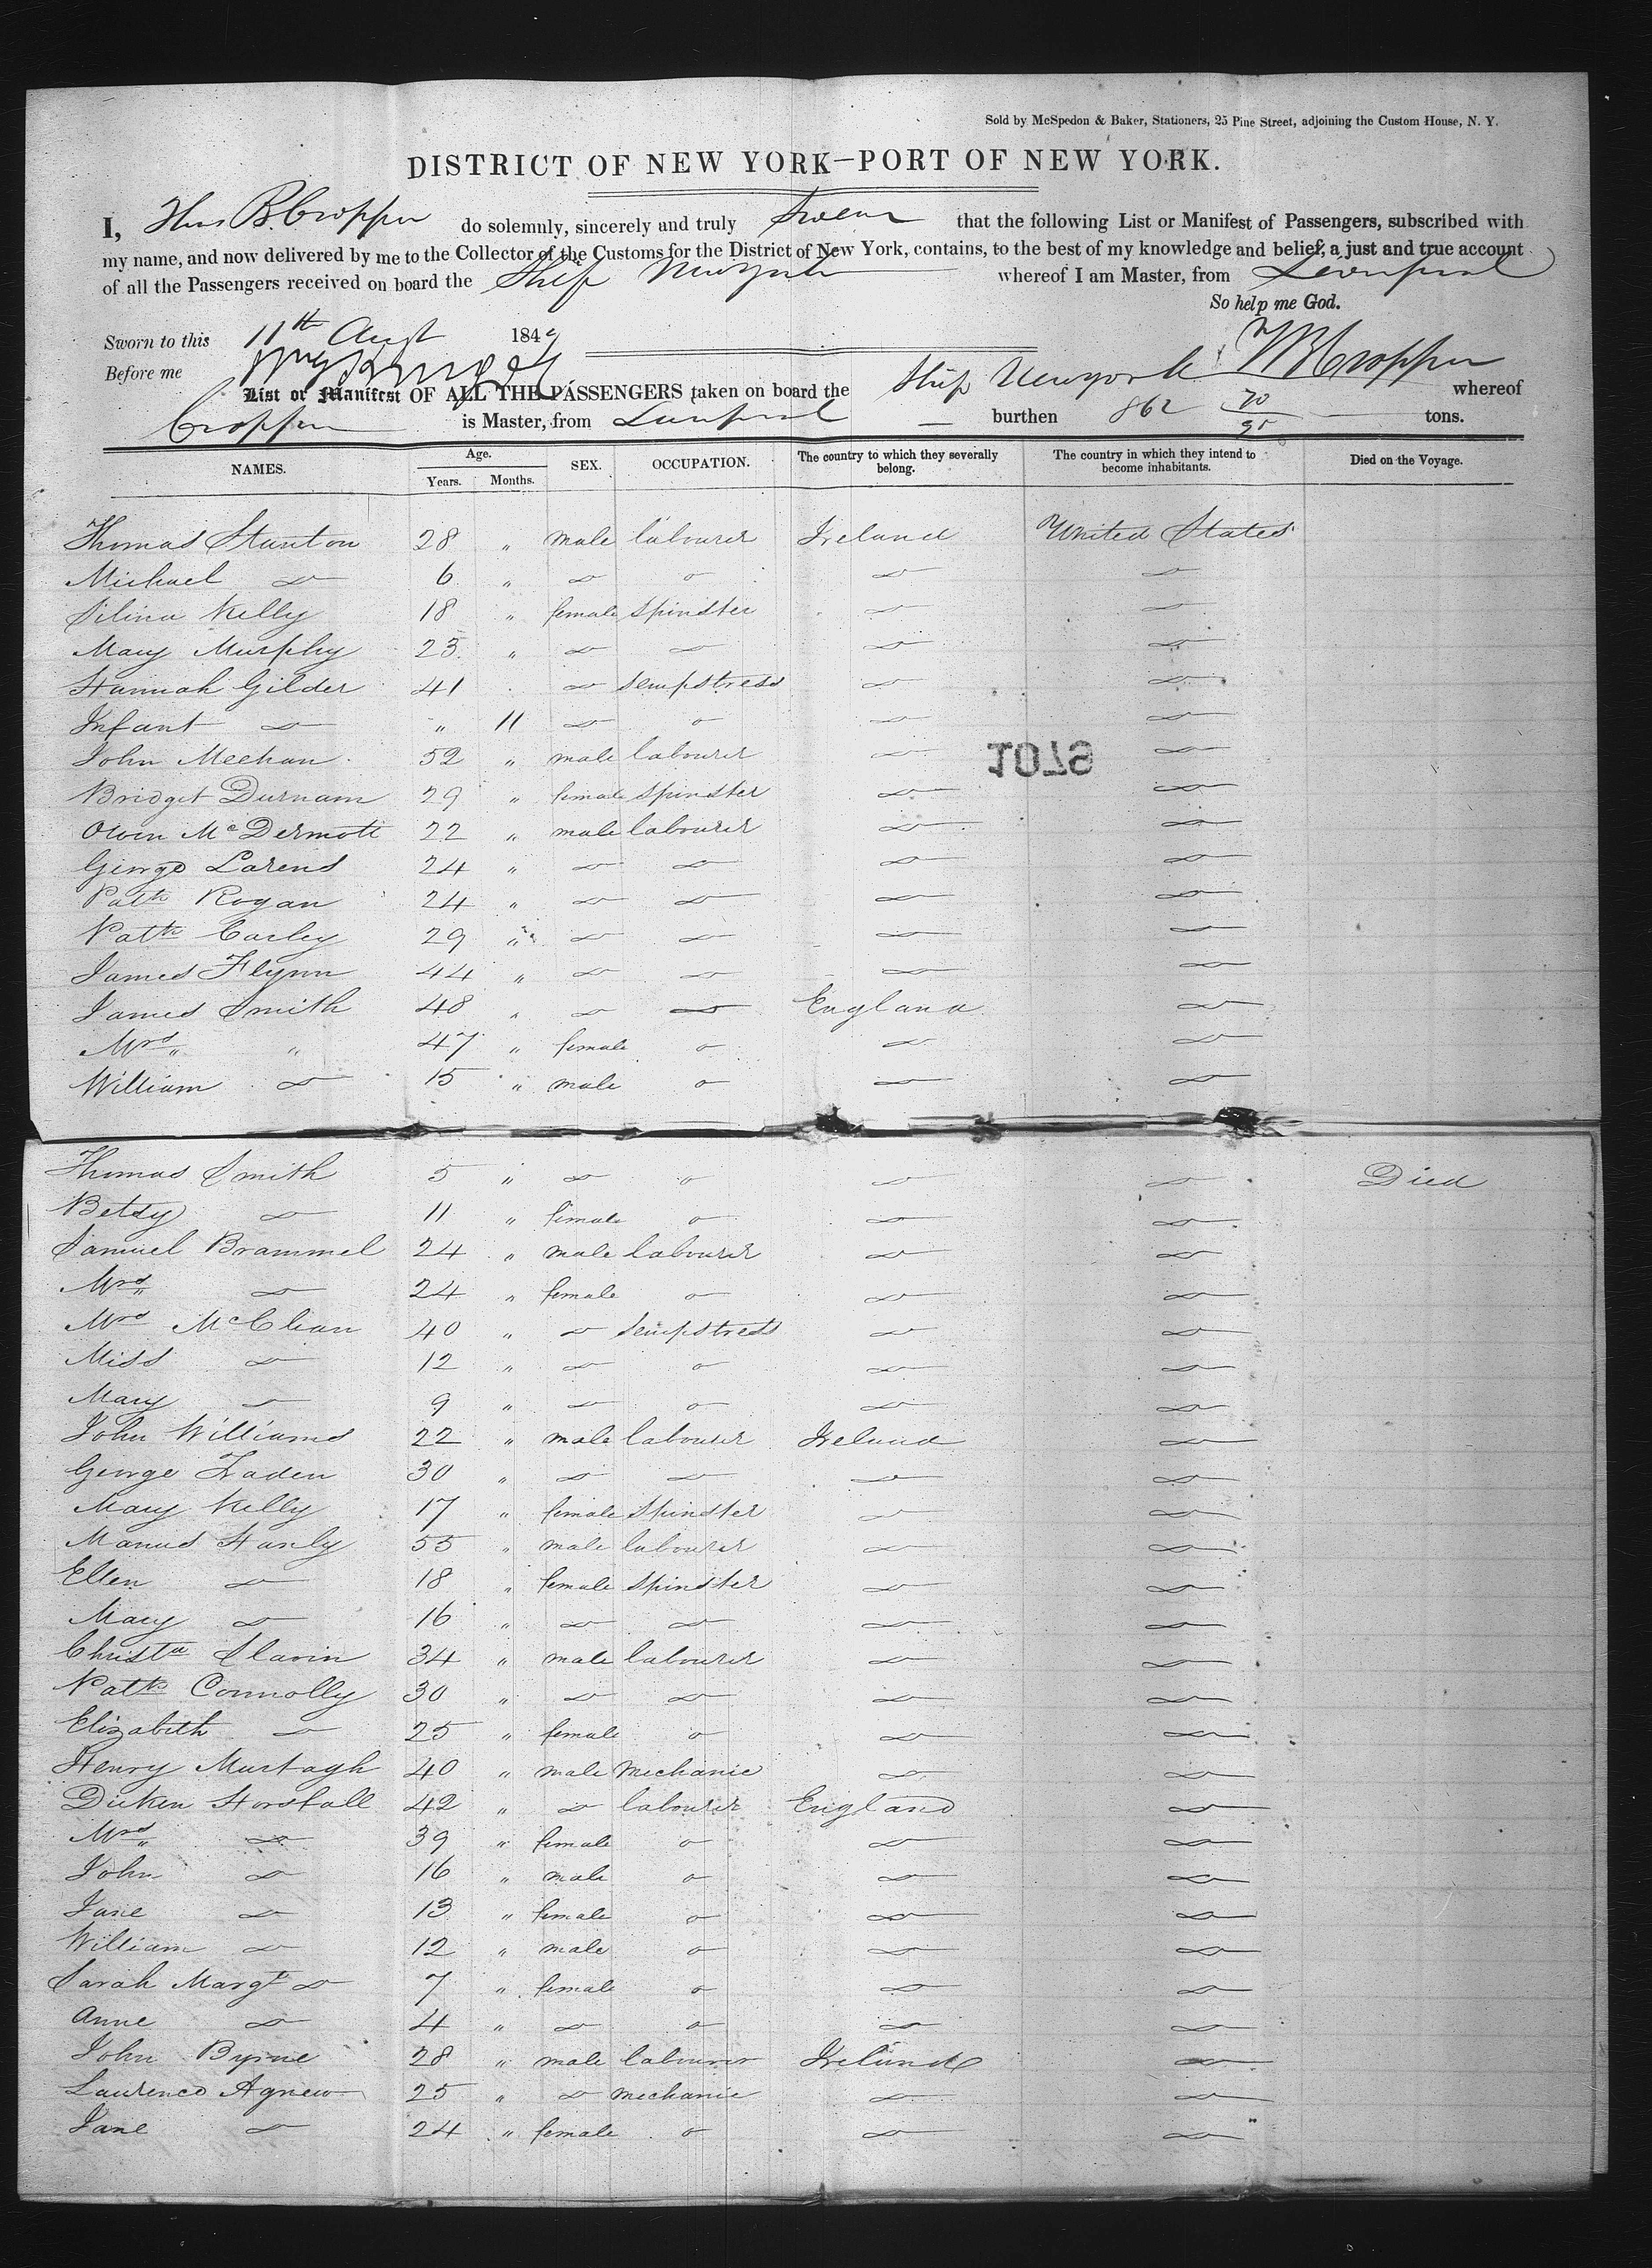 Sold by McSpedon & Baker, Stationers, 25 Pine Street, adjoining the Custom House, N. Y.
DISTRICT OF NEW YORK—PORT OF NEW YORK.
I, Thos B. Cropper do solemnly, sincerely and truly Swear that the following List or Manifest of Passengers, subscribed with
my name, and now delivered by me to the Collector of the Customs for the District of New York, contains, to the best of my knowledge and belief, a just and true account
of all the Passengers received on board the Ship New York whereof I am Master, from Liverpool
So help me God.
Sworn to this 11th Augt 1849
Before me
TB Cropper
List or Manifest OF ALL THE PASSENGERS taken on board the Ship Newyork whereof
Cropper is Master, from Liverpool burthen 862 70/95 tons.
NAMES. Age. Years. Months. SEX. OCCUPATION. The country to which they severally belong. The country in which they intend to become inhabitants. Died on the Voyage.
Thomas Stanton 28 " male labourer Ireland United States
Michael do 6 " do o do do
Silina Kelly 18 " female spinster do do
Mary Murphy 23 " do do do do
Hannah Gilder 41 do sempstress do do
Infant do " 11 do o do do
John Meehan 52 " male labourer do do
1079
Bridget Durnam 29 " female spinster do do
Owen McDermott 22 " male labourer do do
George Larens 24 " do do do do
Patk Rogan 24 " do do do do
Patk Carley 29 " do do do do
James Flynn 44 " do do do do
James Smith 48 " do do England do
Mrs " 47 " female o do do
William do 15 " male o do do
Thomas Smith 5 " do o do do Died
Betsy do 11 " female o do do
Samuel Brammel 24 " male labourer do do
Mrs do 24 " female o do do
Mrs McClean 40 " do sempstress do do
Miss do 12 " do o do do
Mary do 9 " do o do do
John Williams 22 " male labourer Ireland do
George Fraden 30 " do do do do
Mary Kelly 17 " female spinster do do
Manus Hanly 55 " male labourer do do
Ellen do 18 " female spinster do do
Mary do 16 " do do do do
Christr Slavin 34 " male labourer do do
Patk Connolly 30 " do do do do
Elizabeth do 25 " female o do do
Henry Murtagh 40 " male mechanic do do
Dicken Horsfall 42 " do labourer England do
Mrs do 39 " female o do do
John do 16 " male o do do
Jane do 13 " female o do do
William do 12 " male o do do
Sarah Margt do 7 " female o do do
Anne do 4 " do o do do
John Byrne 28 " male labourer Ireland do
Laurence Agnew 25 " do mechanic do do
Jane do 24 " female o do do